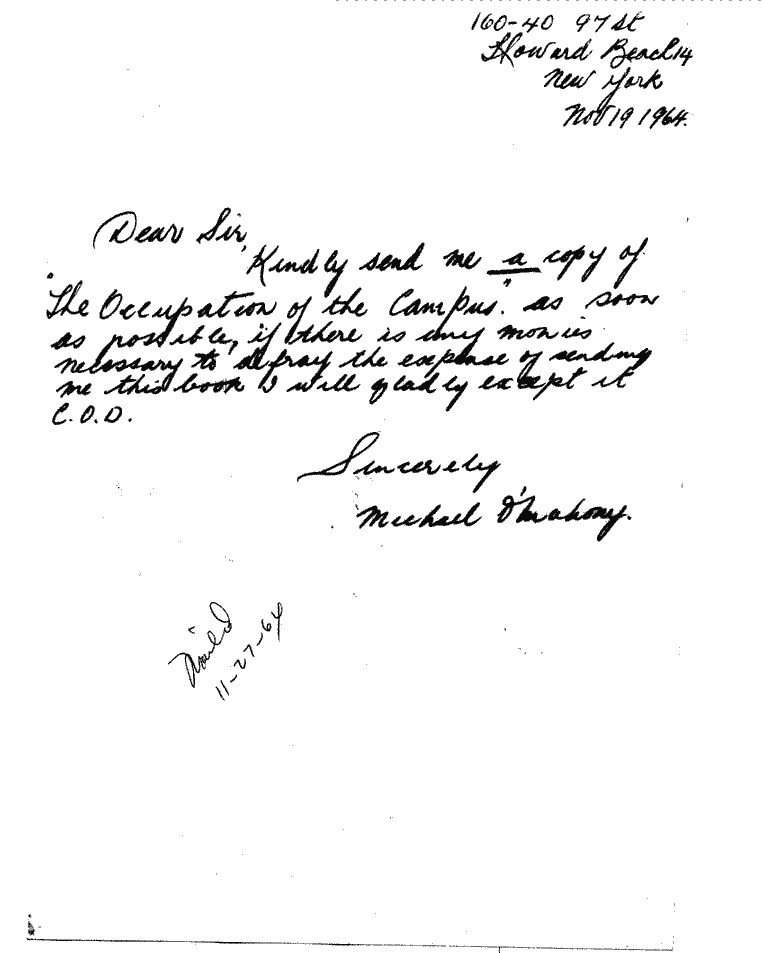 160-40 97 St
Howard Beach 14
New York
Nov 19 1964.
Dear Sir,
Kindly send me a copy of
"The Occupation of the Campus." as soon
as possible, if there is any monies
necessary to defray the expense of sending
me this book I will gladly except it
C.O.D.
Sincerely
Michael O'Mahony.
Mailed
11-27-64